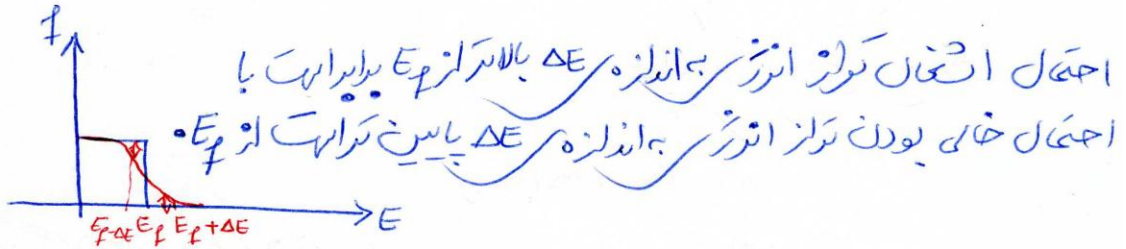 f
احتمال اشغال تراز انرژی به اندازه‌ی ΔE بالاتر از E_f برابر است با
احتمال خالی بودن تراز انرژی به اندازه‌ی ΔE پایین تر است از E_f.
E_f-ΔE E_f E_f+ΔE
E